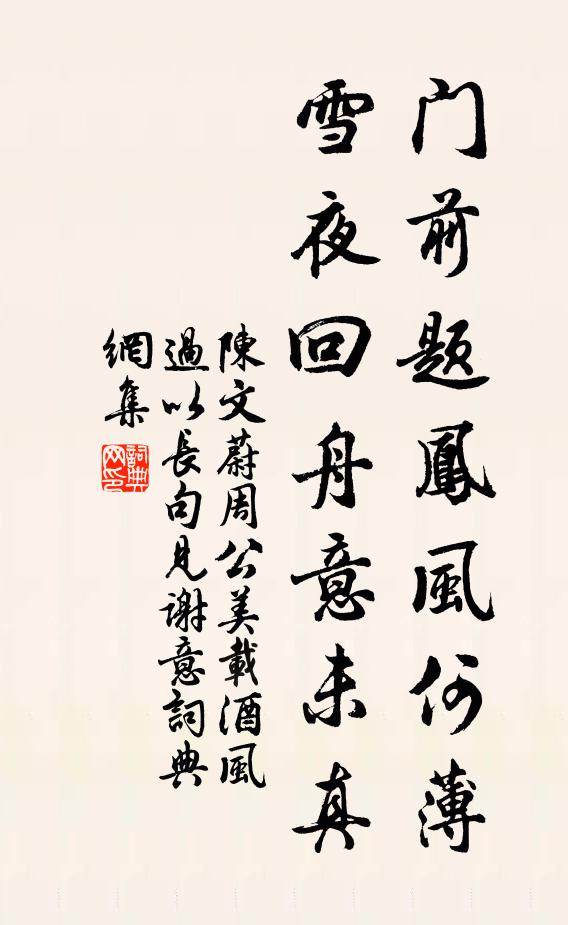 门前題鳳風何薄
雪夜回舟意未真
陳文蔚周公美載酒風
過以長句見謝意詞典
網集
詞典
网印